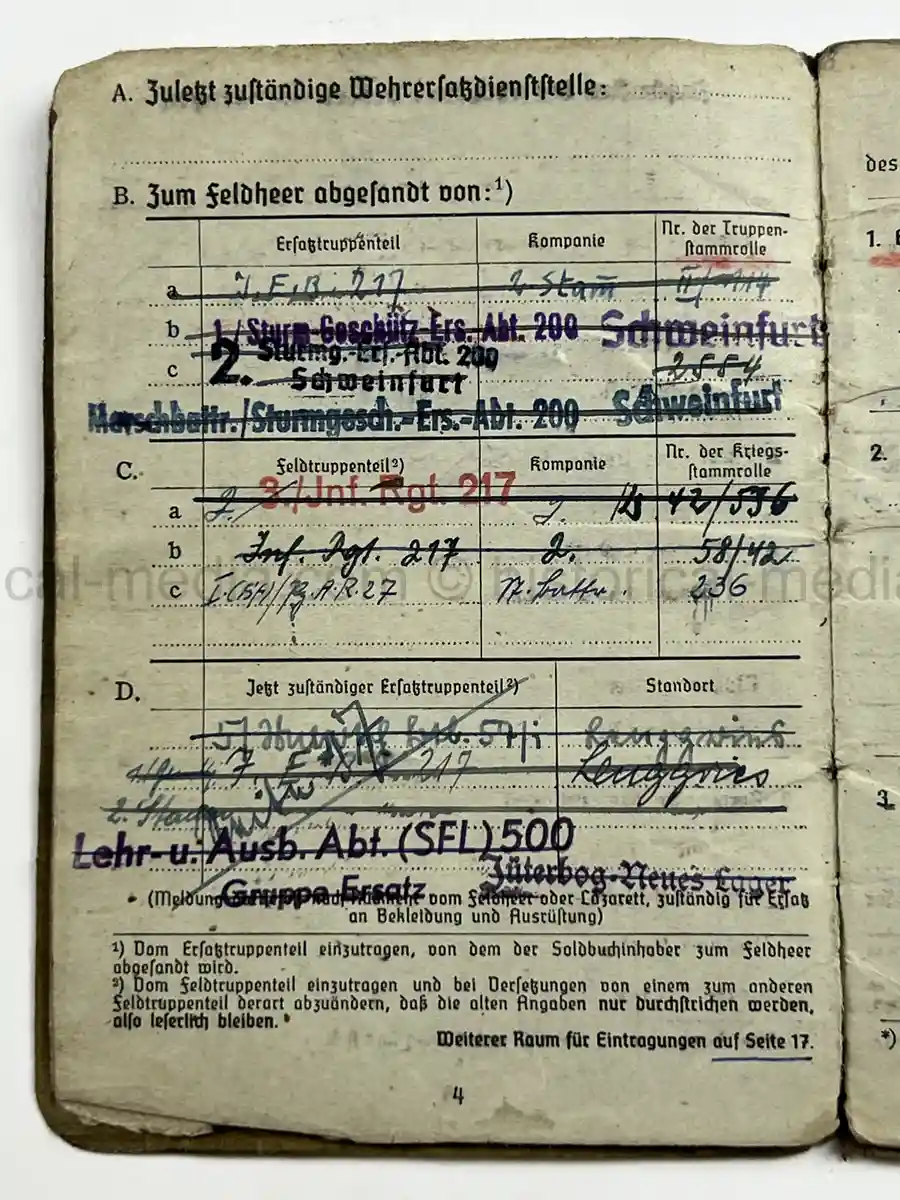 A. Zuletzt zuständige Wehrersatzdienststelle:
B. Zum Feldheer abgesandt von:¹)
Ersatztruppenteil Kompanie Nr. der Truppen-
stammrolle
a J.E.B. 217 2 Stam II/
b 1./Sturm-Geschütz Ers. Abt. 200 Schweinfurt
c 2. Sturmg.-Ers.-Abt. 200 2554
Schweinfurt
Marschbattr./Sturmgesch.-Ers.-Abt. 200 Schweinfurt
C. Feldtruppenteil²) Kompanie Nr. der Kriegs-
stammrolle
3./Inf. Rgt. 217
a 2. 42/596
b Inf. Rgt. 217 2. 58/42
c Pz.A.R. 27 236
cal-med © historical-media
D. Jetzt zuständiger Ersatztruppenteil²) Standort
57/i Lenggries
217 Lenggries
Lehr- u. Ausb. Abt. (SFL) 500
Gruppe Ersatz Jüterbog-Neues Lager
(Meldung vom Feldheer oder Lazarett, zuständig für Ersatz
an Bekleidung und Ausrüstung)
¹) Vom Ersatztruppenteil einzutragen, von dem der Soldbuchinhaber zum Feldheer
abgesandt wird.
²) Vom Feldtruppenteil einzutragen und bei Versetzungen von einem zum anderen
Feldtruppenteil derart abzuändern, daß die alten Angaben nur durchstrichen werden,
also leserlich bleiben.
Weiterer Raum für Eintragungen auf Seite 17.
4
des
1.
2.
3.
*)